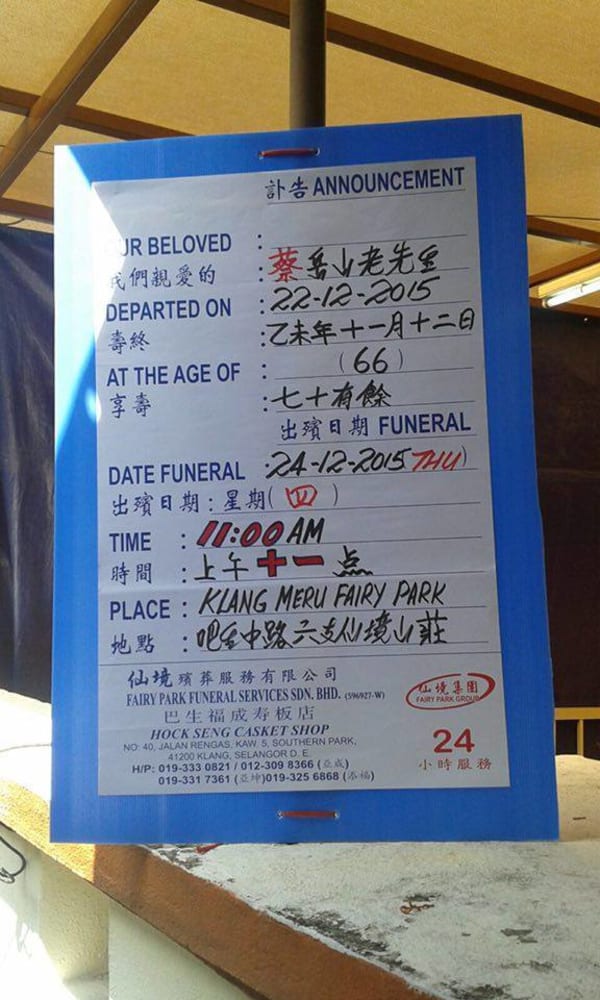 訃告 ANNOUNCEMENT
OUR BELOVED :
我們親愛的 : 蔡岳山老先生
DEPARTED ON : 22-12-2015
壽終 : 乙未年十一月十二日
AT THE AGE OF : (66)
享壽 : 七十有餘
出殯日期 FUNERAL
DATE FUNERAL : 24-12-2015 THU)
出殯日期 : 星期( 四 )
TIME : 11:00 AM
時間 : 上午十一点
PLACE : KLANG MERU FAIRY PARK
地點 : 吧生中路六支仙境山莊
仙境殯葬服務有限公司
FAIRY PARK FUNERAL SERVICES SDN. BHD. (596927-W)
巴生福成寿板店
HOCK SENG CASKET SHOP
NO: 40, JALAN RENGAS, KAW. 5, SOUTHERN PARK,
41200 KLANG, SELANGOR D. E.
H/P: 019-333 0821 / 012-309 8366 (亞成)
019-331 7361 (亞坤) 019-325 6868 (添福)
仙境集團
FAIRY PARK GROUP
24
小時服務